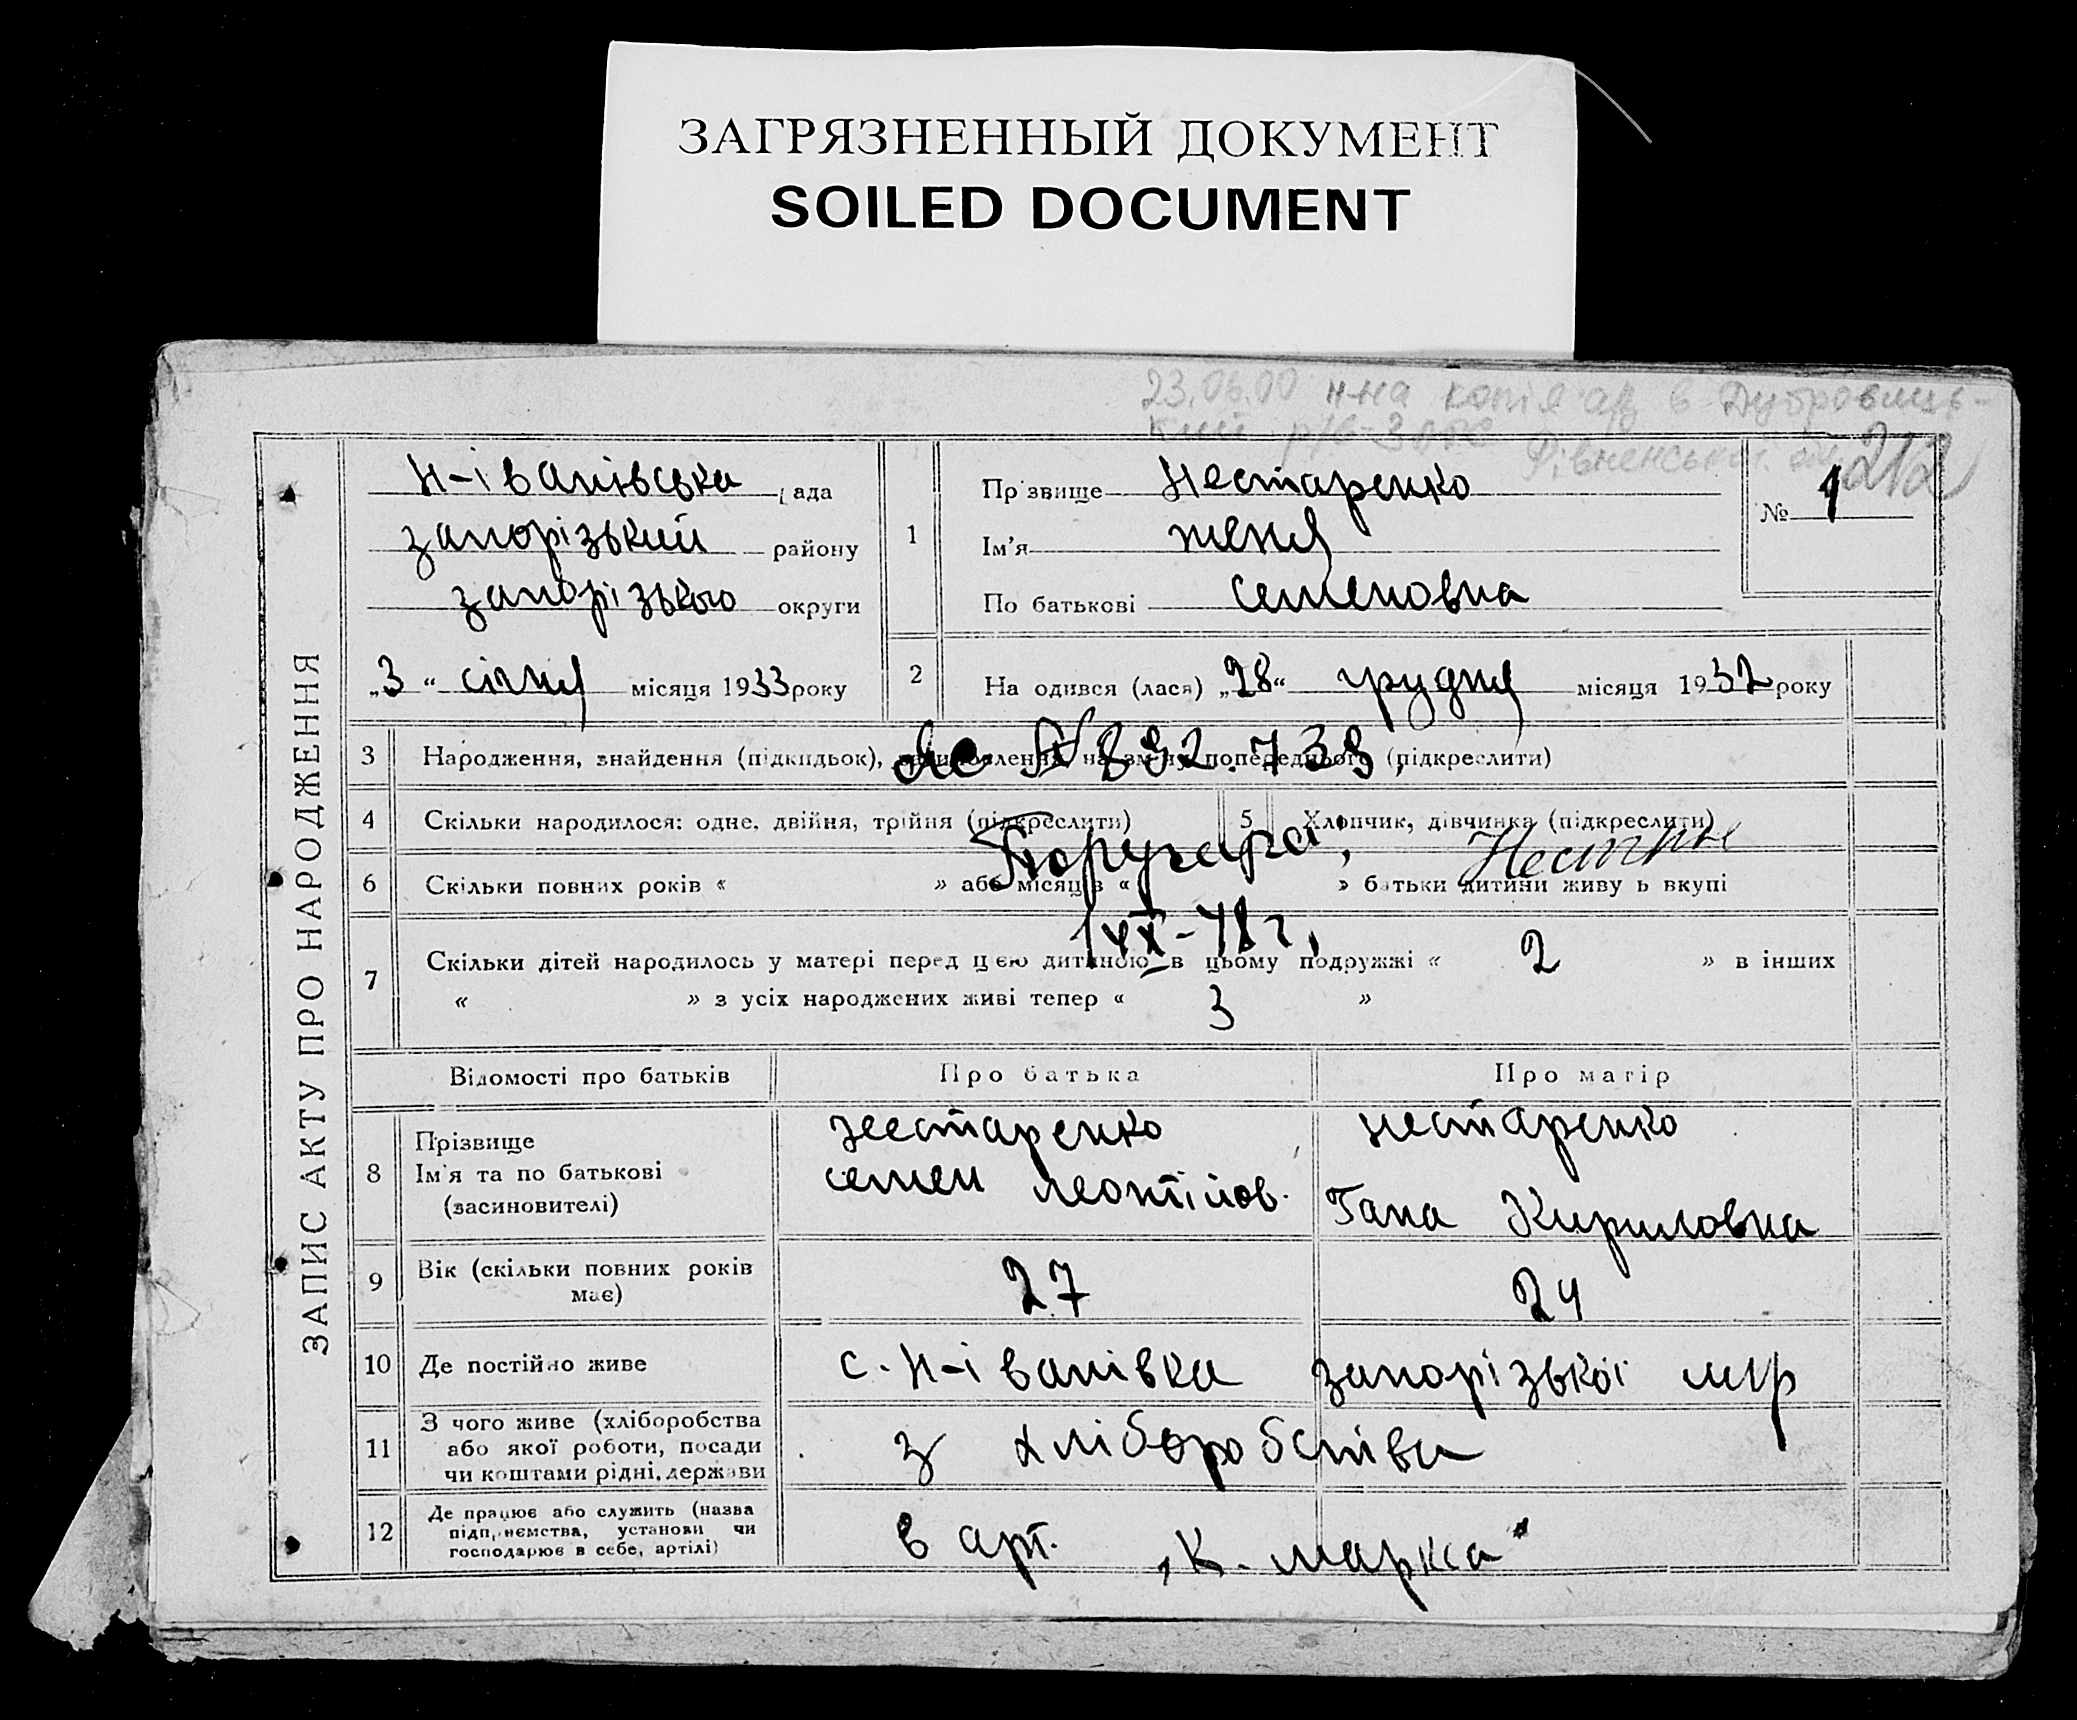 ЗАГРЯЗНЕННЫЙ ДОКУМЕНТ
SOILED DOCUMENT
23.06.00 н-на копія а/з в Дубровиць-
кий р/в ЗАГС Рівненської обл. 212
ЗАПИС АКТУ ПРО НАРОДЖЕННЯ
Н-іванівська рада
запорізький району
запорізького округи
„3“ січня місяця 1933 року
1
Прізвище Нестаренко
Ім'я женя
По батькові семеновна
№ 1
2
На одився (лася) „28“ грудня місяця 1932 року
3 Народження, знайдення (підкидьок), на зміну попереднього (підкреслити)
№ 892.739,
4 Скільки народилося: одне, двійня, трійня (підкреслити) 5 Хлопчик, дівчинка (підкреслити)
6 Скільки повних років « » або місяців « » батьки дитини живу ь вкупі
1/IX-48 г,
7 Скільки дітей народилось у матері перед цією дитиною в цьому подружжі « 2 » в інших
« » з усіх народжених живі тепер « 3 »
Відомості про батьків Про батька Про матір
8 Прізвище
Ім'я та по батькові
(засиновителі)
нестаренко
семен леонтійов.
нестаренко
Гана Кириловна
9 Вік (скільки повних років
має)
27 24
10 Де постійно живе с. Н-іванівка запорізької мір
11 З чого живе (хліборобства
або якої роботи, посади
чи коштами рідні, держави
з хліборобства
12 Де працює або служить (назва
підприємства, установи чи
господарює в себе, артілі)
в арт. „К. маркса"